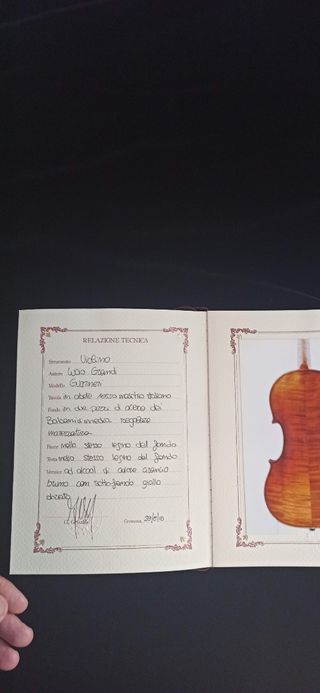 RELAZIONE TECNICA
Strumento Violino
Autore Grandi
Modello Guarneri
Tavola in abete rosso maschio italiano
Fondo in due pezzi di acero dei
Balcani media
marezzatura
Fasce nello stesso legno del fondo
Testa nello stesso legno del fondo
Vernice ad alcool di colore arancio
bruno con sottofondo giallo
dorato
Cremona,